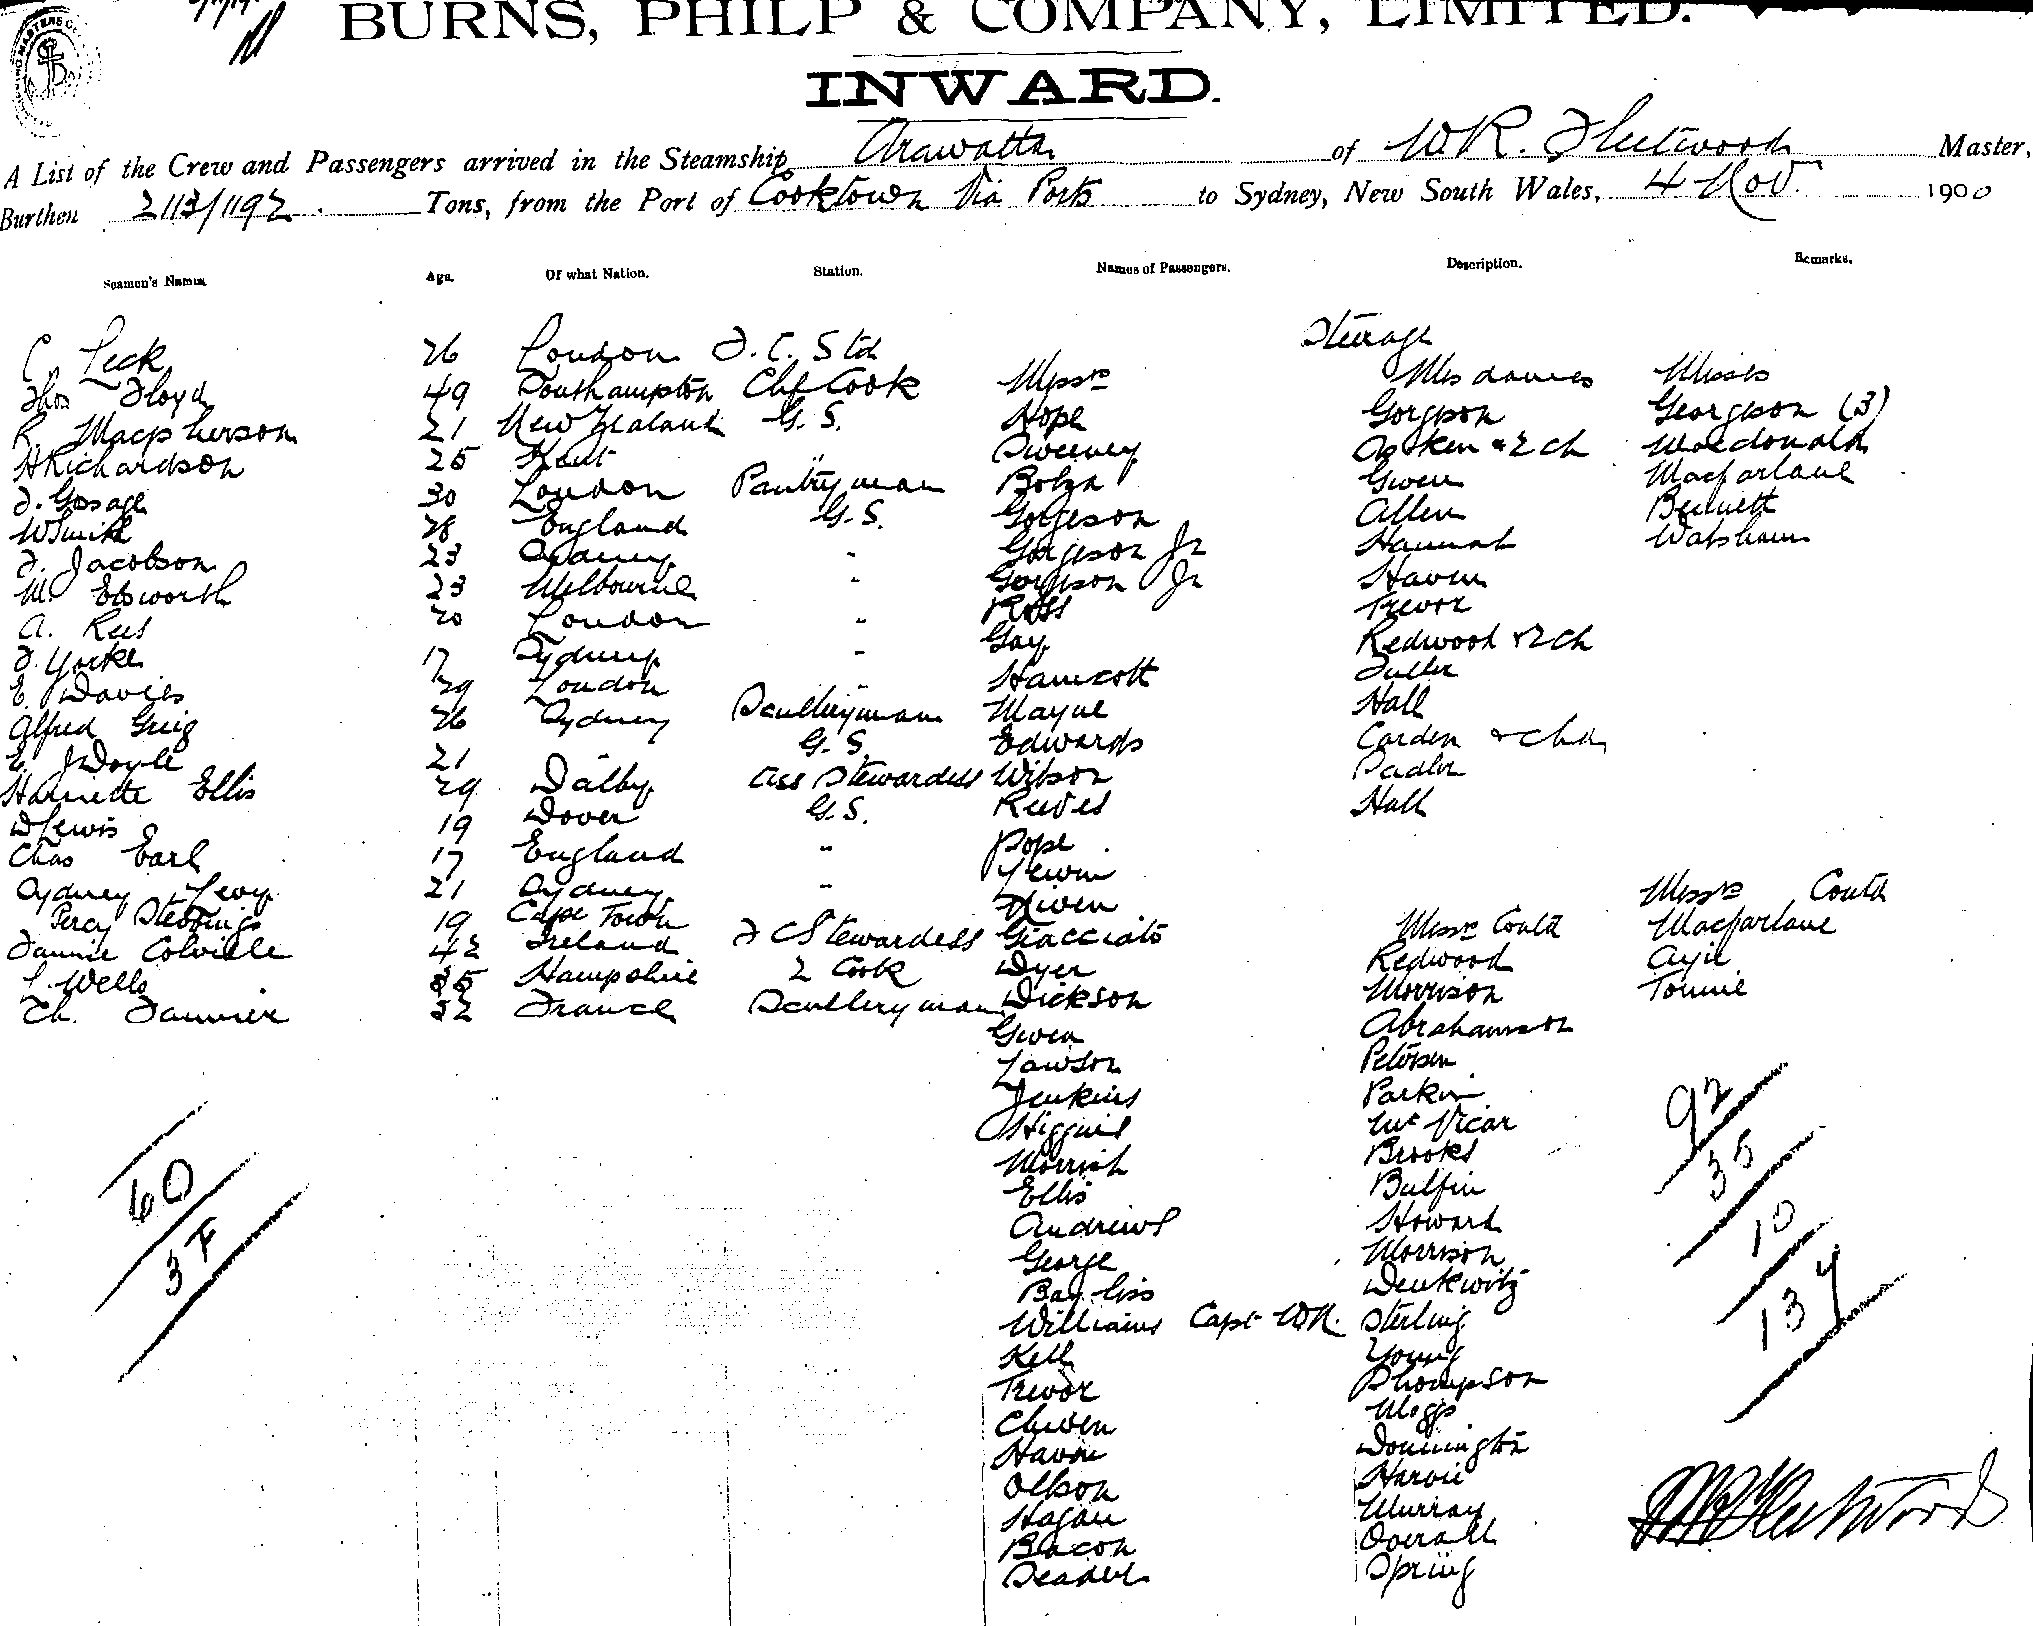 BURNS, PHILP & COMPANY, LIMITED.
INWARD.
A List of the Crew and Passengers arrived in the Steamship Arawatta of W R. Fleetwood Master,
Burthen 2113/1192. Tons, from the Port of Cooktown Via Ports to Sydney, New South Wales, 4 Nov. 1900
Seamen's Names Age. Of what Nation. Station. Names of Passengers. Description. Remarks.
Steerage
C. Leck 26 London F.C. Std
Thos Floyd 49 Southampton Chf Cook Messrs Mesdames Misses
R. Macpherson 21 New Zealand G.S. Hope Gorgson Georgeson (3)
H Richardson 25 Kent " Sweeney Aitken & 2 ch Macdonald
F. Gosage 30 London Pantryman Botza Gwen Macfarlane
W Smith 28 England G.S. Gorgeson Allen Bennett
F. Jacobson 23 Sydney " Gorgeson Jr Hannah Watsham
M. Ebsworth 23 Melbourne " Gorgeson Jr Haven
A. Rees 20 London " Ross Trevor
F. Yorke 17 Sydney " Gay Redwood & 2 ch
E. Davies 29 London " Hamcott Fuller
Alfred Greig 26 Sydney Scullyman Mayne Hall
E. J Doyle 21 G.S. Edwards Carden & chd
Harriette Ellis 29 Dalby Ass Stewardess Wilson Padler
D Lewis 19 Dover G.S. Reeves Hall
Chas Earl 17 England " Pope
Sydney Levy 21 Sydney " Messrs Coutd
Percy Stebbings 19 Cape Town Niven Messrs Coutd Macfarlane
Fannie Colville 42 Ireland F C Stewardess Giacciato Redwood
L. Wells 35 Hampshire 2 Cook Dyer Morrison Tonnie
Ch. Fannier 32 France Scullery man Dickson Abrahamson
Gwen Petersen
Lawson Parkin
Jenkins McVicar
Higgins Brooks
Morrish Bulfin
Ellis Howard
Andrews Morrison
George Denkwitz
Bayliss Sterling
Williams Capt WR. Young
Kell Thompson
Trevor Moggs
Chiven Donnington
Havon Harvie
Olson Murray
Hagan Overall
Bacon Spring
Seadel
60
37
92
35
10
137
W R Fleetwood